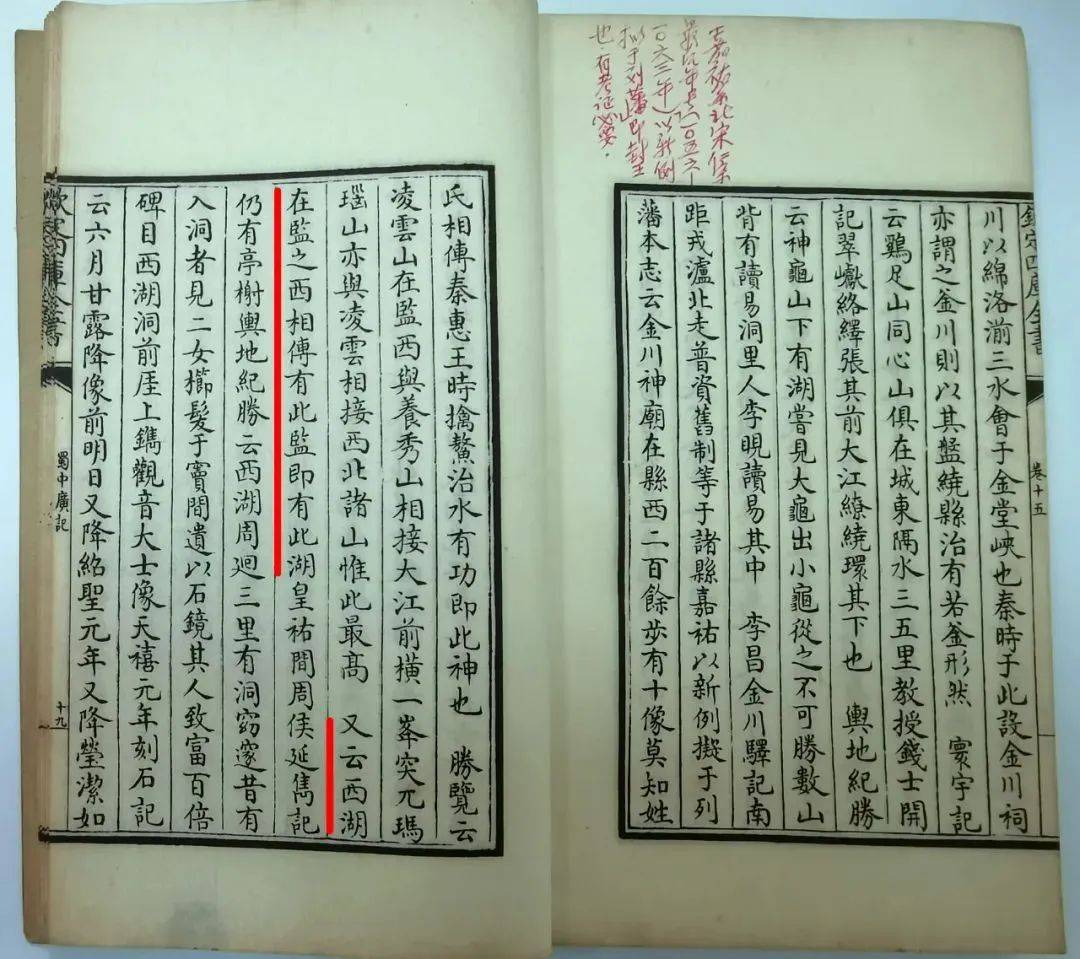 嘉祐系北宋保
最后年号(一〇五六—
一〇六三年)以新例
拟于列藩即封
也.有考证必要.
欽定四庫全書
卷十五
川以綿洛湔三水會于金堂峽也秦時于此設金川祠
亦謂之釜川則以其盤繞縣治有若釜形然 寰宇記
云鷄足山同心山俱在城東隔水三五里教授錢士開
記翠巘絡繹張其前大江繚繞環其下也 輿地紀勝
云神龜山下有湖嘗見大龜出小龜從之不可勝數山
背有讀易洞里人李晛讀易其中 李昌金川驛記南
距戎瀘北走普資舊制等于諸縣嘉祐以新例擬于列
藩本志云金川神廟在縣西二百餘步有十像莫知姓
氏相傳秦惠王時擒鰲治水有功即此神也 勝覽云
凌雲山在監西與養秀山相接大江前横一峯突兀瑪
瑙山亦與凌雲相接西北諸山惟此最髙 又云西湖
在監之西相傳有此監即有此湖皇祐間周侯延雋記
仍有亭榭輿地紀勝云西湖周廻三里有洞窈邃昔有
入洞者見二女櫛髮于竇間遺以石鏡其人致富百倍
碑目西湖洞前厓上鐫觀音大士像天禧元年刻石記
云六月甘露降像前明日又降紹聖元年又降瑩潔如
欽定四庫全書
蜀中廣記
十九